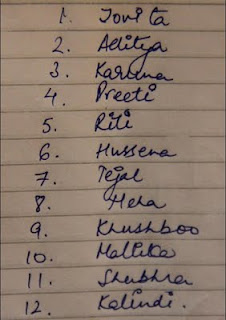 1. Jovita
2. Aditya
3. Karuna
4. Preeti
5. Riti
6. Hussena
7. Tejal
8. Heha
9. Khushboo
10. Mallika
11. Shubhra
12. Kalindi.